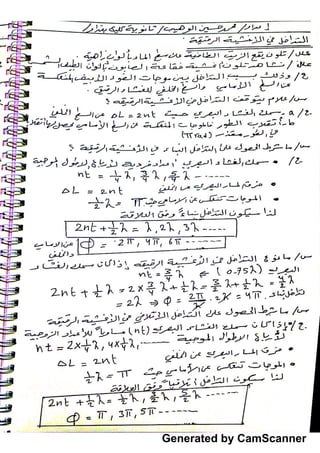 اعداد / عمر حسين الوهيبي / ثانوية كلية بغداد /
التداخل في الأغشية الرقيقة :-
علل / تلون بقع الزيت الطافية على سطح الماء بألوان زاهية
علل / تلون فقاعة الصابون بألوان الطيف
ج / وذلك بسبب التداخل بين موجات الضوء الابيض المنعكسة
عن السطح الأمامي والسطح الخلفي للغشاء الرقيق .
س / علام يتوقف التداخل في الأغشية الرقيقة ؟
ج / a - سمك الغشاء البصري حيث ΔL = 2nt عن الخلفي
انقلاب الطور للموجات المنعكسة عن السطح الأمامي
في الطور مقداره (π rad)
س / ما شرط الحصول على التداخل البناء في الأغشية الرقيقة ؟
ج / • سمك الغشاء البصري اعداد فردية لارباع الطول الموجية
nt = 1/4 λ, 3/4 λ, 5/4 λ, -----
• فرق المسار البصري عن الخلفي
ΔL = 2nt
• الموجات تنعكس عن الأمامي حيث
1/2 λ = π
لذا سيكون التداخل بناءً وفق العلاقة
2nt + 1/2 λ = λ, 2λ, 3λ -----
Φ = 2π, 4π, 6π -----
س / ما نوع التداخل في الأغشية الرقيقة اذا كان سمك الغشاء
البصري (0.75λ) nt = 3/4 λ
2nt + 1/2 λ = 2 × 3/4 λ + 1/2 λ = 3/2 λ + 1/2 λ = 4/2 λ
= 2λ ⇒ Φ = 2π/λ . 2λ = 4π تداخل بناء
س / ما شرط الحصول على التداخل الاتلافي في الأغشية الرقيقة
ج / • اذا كان سمك الغشاء البصري (nt) مساوياً للأعداد الزوجية
لارباع الاطوال الموجية
nt = 2×1/4 λ, 4×1/4 λ, -----
• فرق المسار البصري عن الخلفي
ΔL = 2nt
• الموجات تنعكس عن الأمامي حيث
1/2 λ = π
لذا سيكون التداخل اتلافياً وفق العلاقة
2nt + 1/2 λ = 1/2 λ, 3/2 λ, 5/2 λ -----
Φ = π, 3π, 5π -----
Generated by CamScanner